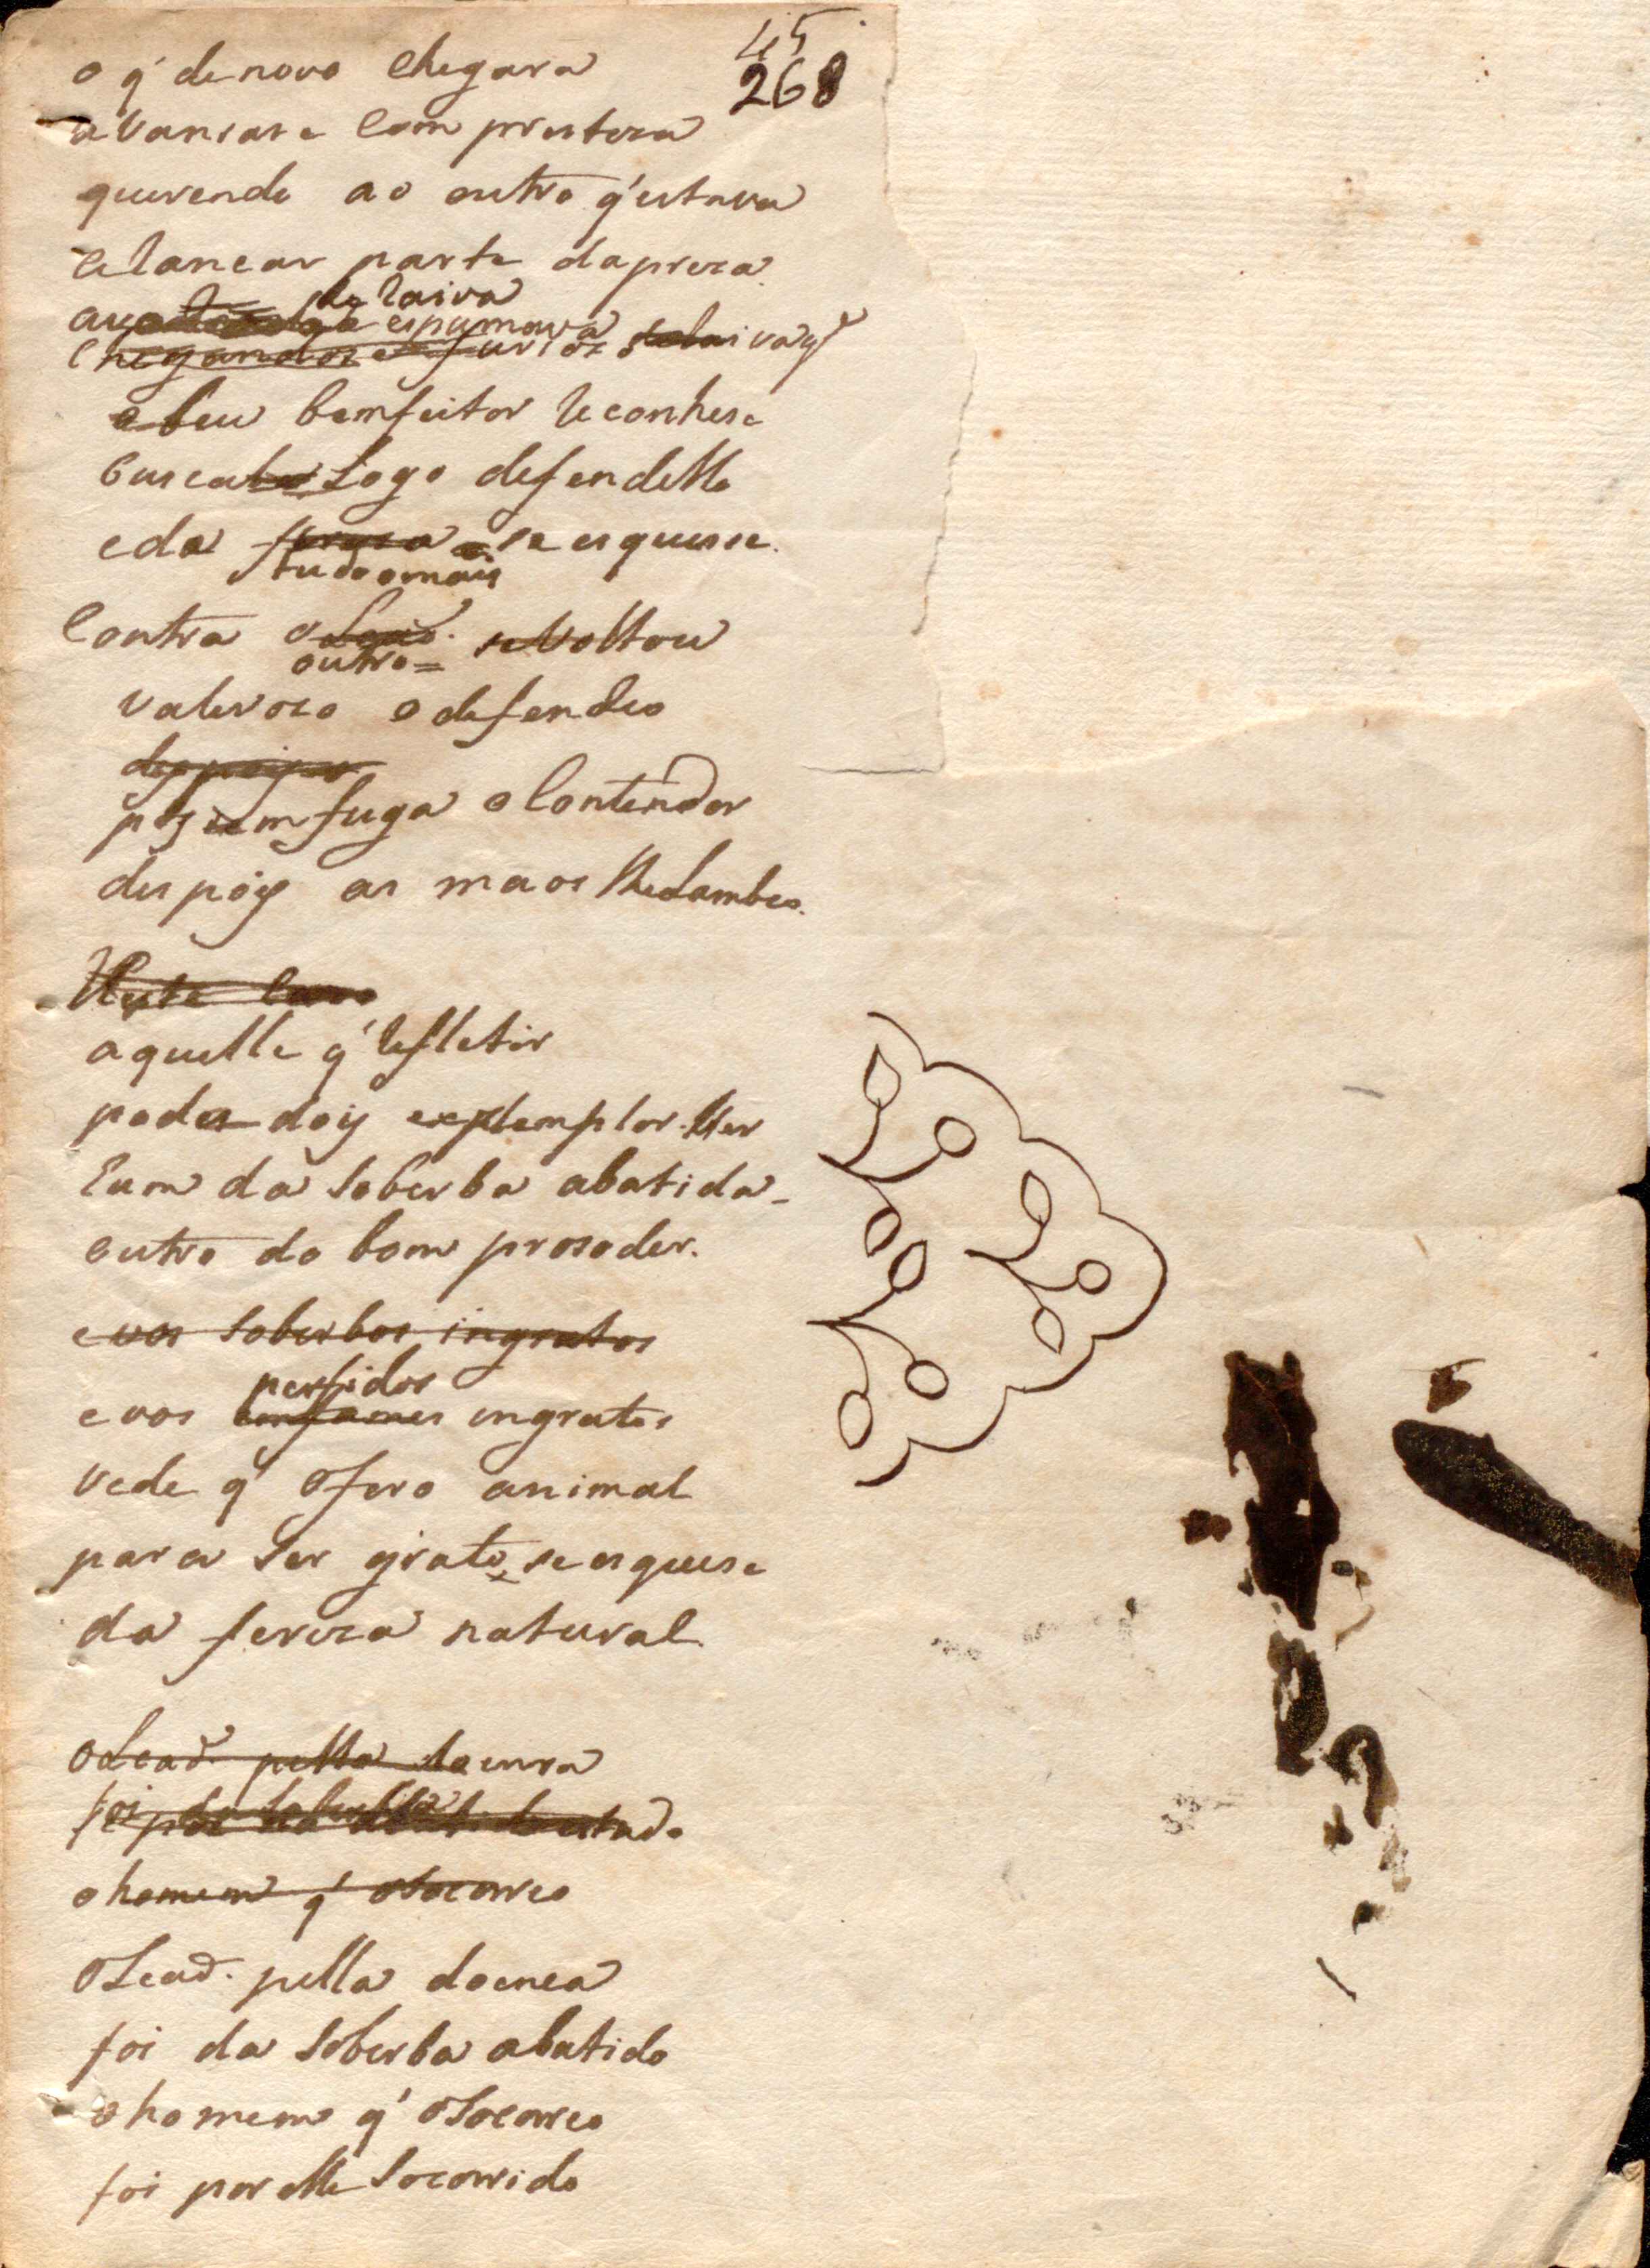 45
268
o q' de novo chegara
avansase com presteza
querendo ao outro q'estava
alancar parte da preza
de raiva
espumava
chegandose furioz raiva
e seu bemfeitor reconhese
busca logo defendello
e da fereza se esquesse.
tudo o mais
Contra o Leaõ. se voltou
outro =
valerozo o defendeo
despois
poz em fuga o Contendor
despois as maos lhe Lambeo.
Neste Cazo
aquelle q' refletir
pode dois exemplos ter
hum da soberba abatida
outro do bom proseder.
e vos soberbos ingratos
perfidos
e vos emfames ingratos
vede q' o fero animal
para ser grato, se esquese
da fereza natural
o Leaõ. pella doensa
foi da soberba
o homem q' o socorreo
o Leaõ. pella doenca
foi da soberba abatido
o homem q' o socorreo
foi por elle socorrido